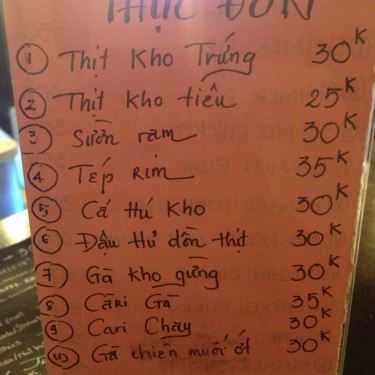 THỰC ĐƠN
1 Thịt kho Trứng 30K
2 Thịt kho tiêu 25K
3 Sườn ram 30K
4 Tép Rim 35K
5 Cá Hú Kho 30K
6 Đậu Hủ dồn thịt 30K
7 Gà kho gừng 30K
8 CàRi Gà 35K
9 Cari Chay 30K
10 Gà chiên muối ớt 30K